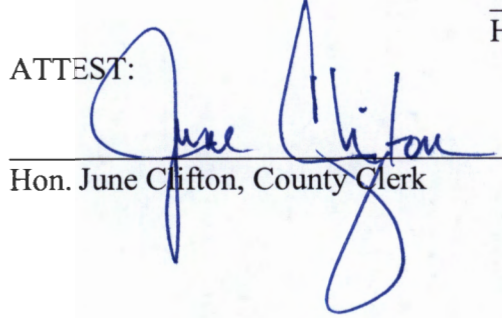 H
ATTEST:
June Clifton
Hon. June Clifton, County Clerk